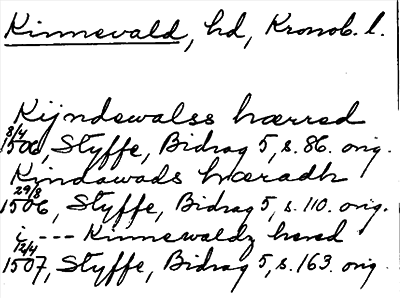 Kinnevald, hd, Kronob. l.
Kijndewalss hærred
8/4
1506, Styffe, Bidrag 5, s. 86. orig.
Kindawads hæradh
29/8
1506, Styffe, Bidrag 5, s. 110. orig.
i --- Kinnewaldz hered
12/4
1507, Styffe, Bidrag 5, s. 163. orig.